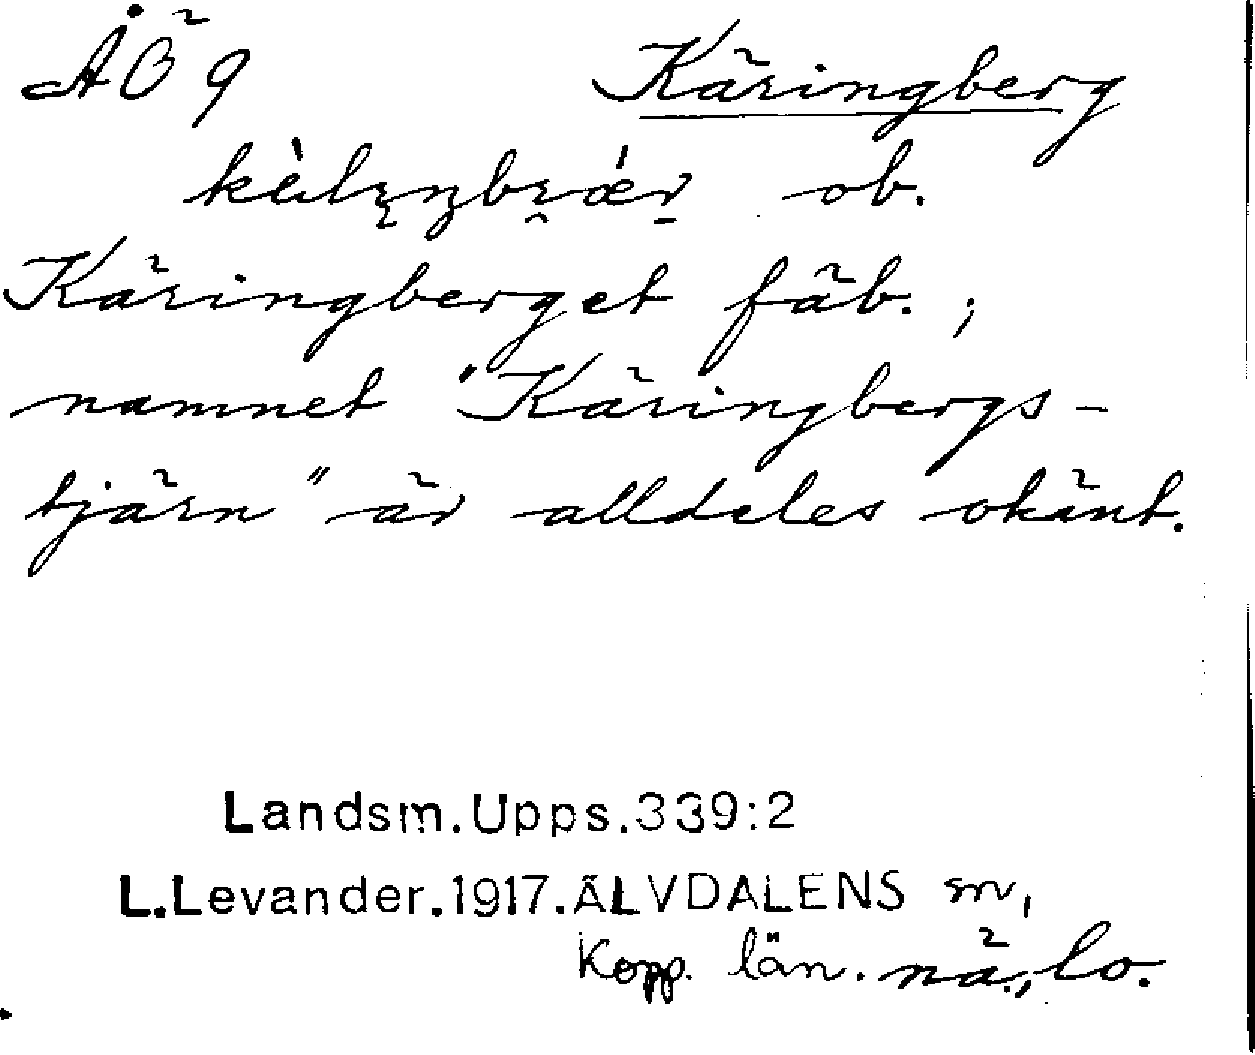 ÅÖ 9 Käringberg
ob.
Käringberget fäb. ;
namnet "Käringbergs-
tjärn" är alldeles okänt.
Landsm.Upps.339:2
L.Levander.1917.ÄLVDALENS sn,
Kopp. län. nä., lo.